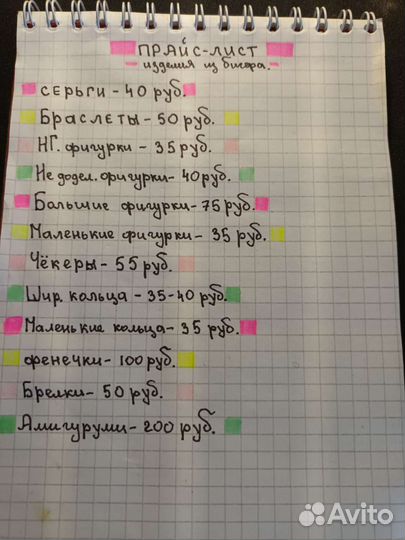 ПРАЙС-ЛИСТ
изделия из бисера.
серьги - 40 руб.
Браслеты - 50 руб.
НГ. фигурки - 35 руб.
Не додел. фигурки - 40 руб.
Большие фигурки - 75 руб.
Маленькие фигурки - 35 руб.
Чёкеры - 55 руб.
Шир. кольца - 35-40 руб.
Маленькие кольца - 35 руб.
фенечки - 100 руб.
Брелки - 50 руб.
Амигуруми - 200 руб.
Avito